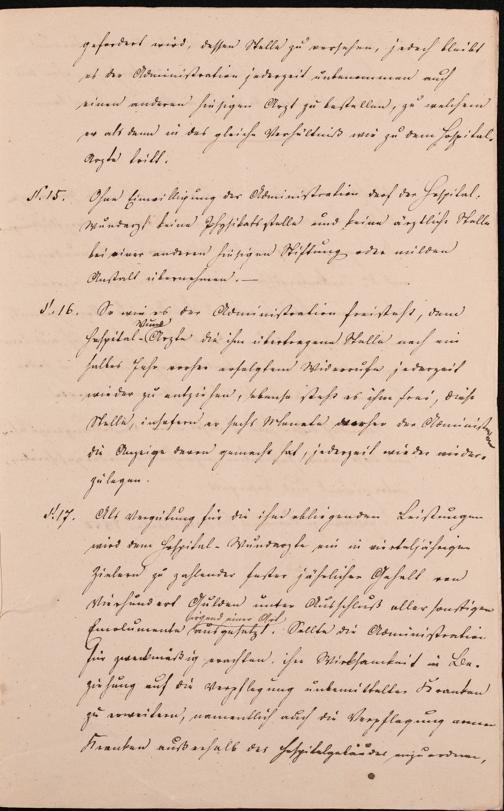 gefordert wird, dessen Stelle zu versehen, jedoch bleibt
es der Administration jederzeit unbenommen auch
einen anderen hiesigen Arzt zu bestellen, zu welchem
er alsdann in das gleiche Verhältniß wie zu dem Hospital-
Arzte tritt.
§. 15. Ohne Einwilligung der Administration darf der Hospital-
Wundarzt keine Physikatsstelle und keine ärztliche Stelle
bei einer anderen hiesigen Stiftung oder milden
Anstalt übernehmen. —
§. 16. So wie es der Administration freisteht, dem
Wund
Hospital-Arzte die ihm übertragene Stelle nach ein
halbes Jahr vorher erfolgtem Widerrufe jederzeit
wieder zu entziehen, ebenso steht es ihm frei, diese
Stelle, insofern er sechs Monate vorher der Administration
die Anzeige davon gemacht hat, jederzeit wieder nieder-
zulegen.
§. 17. Als Vergütung für die ihm obliegenden Leistungen
wird dem Hospital-Wundarzte ein in vierteljährigen
Zielern zu zahlender fester jährlicher Gehalt von
Vierhundert Gulden unter Ausschluß aller sonstigen
irgend einer Art
Emolumente ausgesetzt. Sollte die Administration
für zweckmäßig erachten, ihre Wirksamkeit in Be-
ziehung auf die Verpflegung unbemittelter Kranken
zu erweitern, namentlich auch die Verpflegung armer
Kranken außerhalb des Hospitalgebäudes anzuordnen,